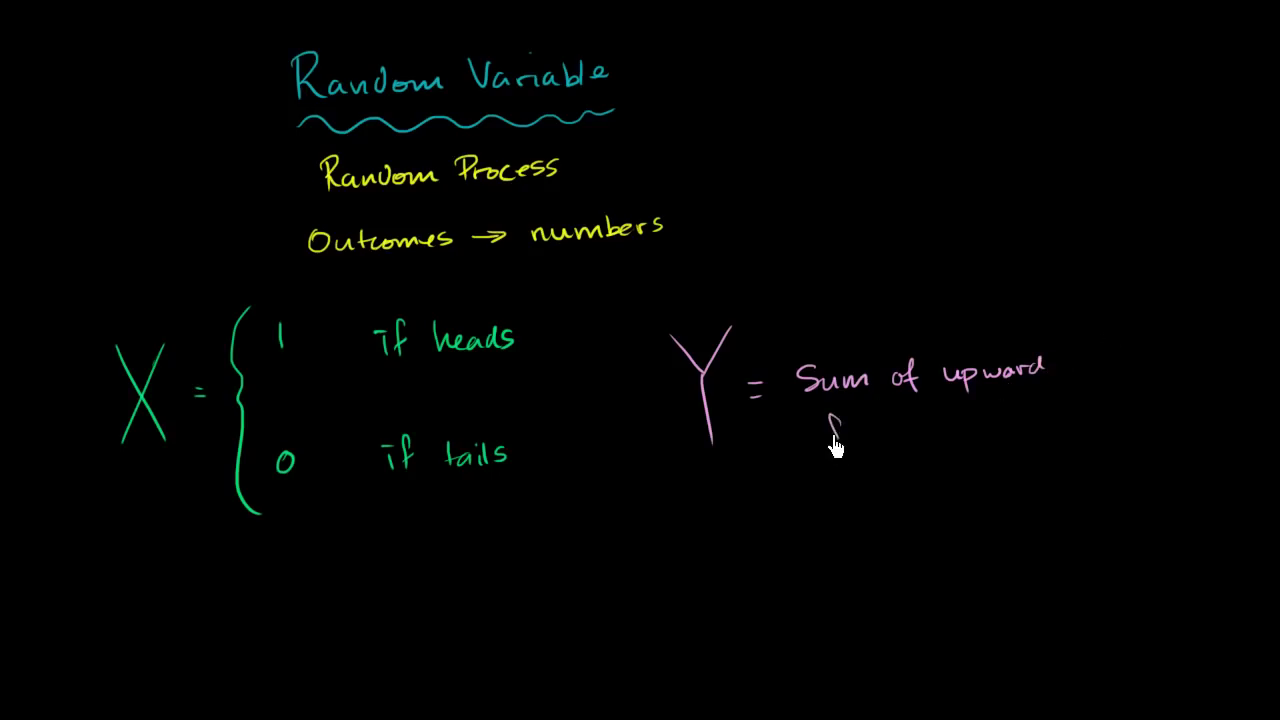 Random Variable
Random Process
Outcomes → numbers
X = { 1 if heads
0 if tails
Y = Sum of upward